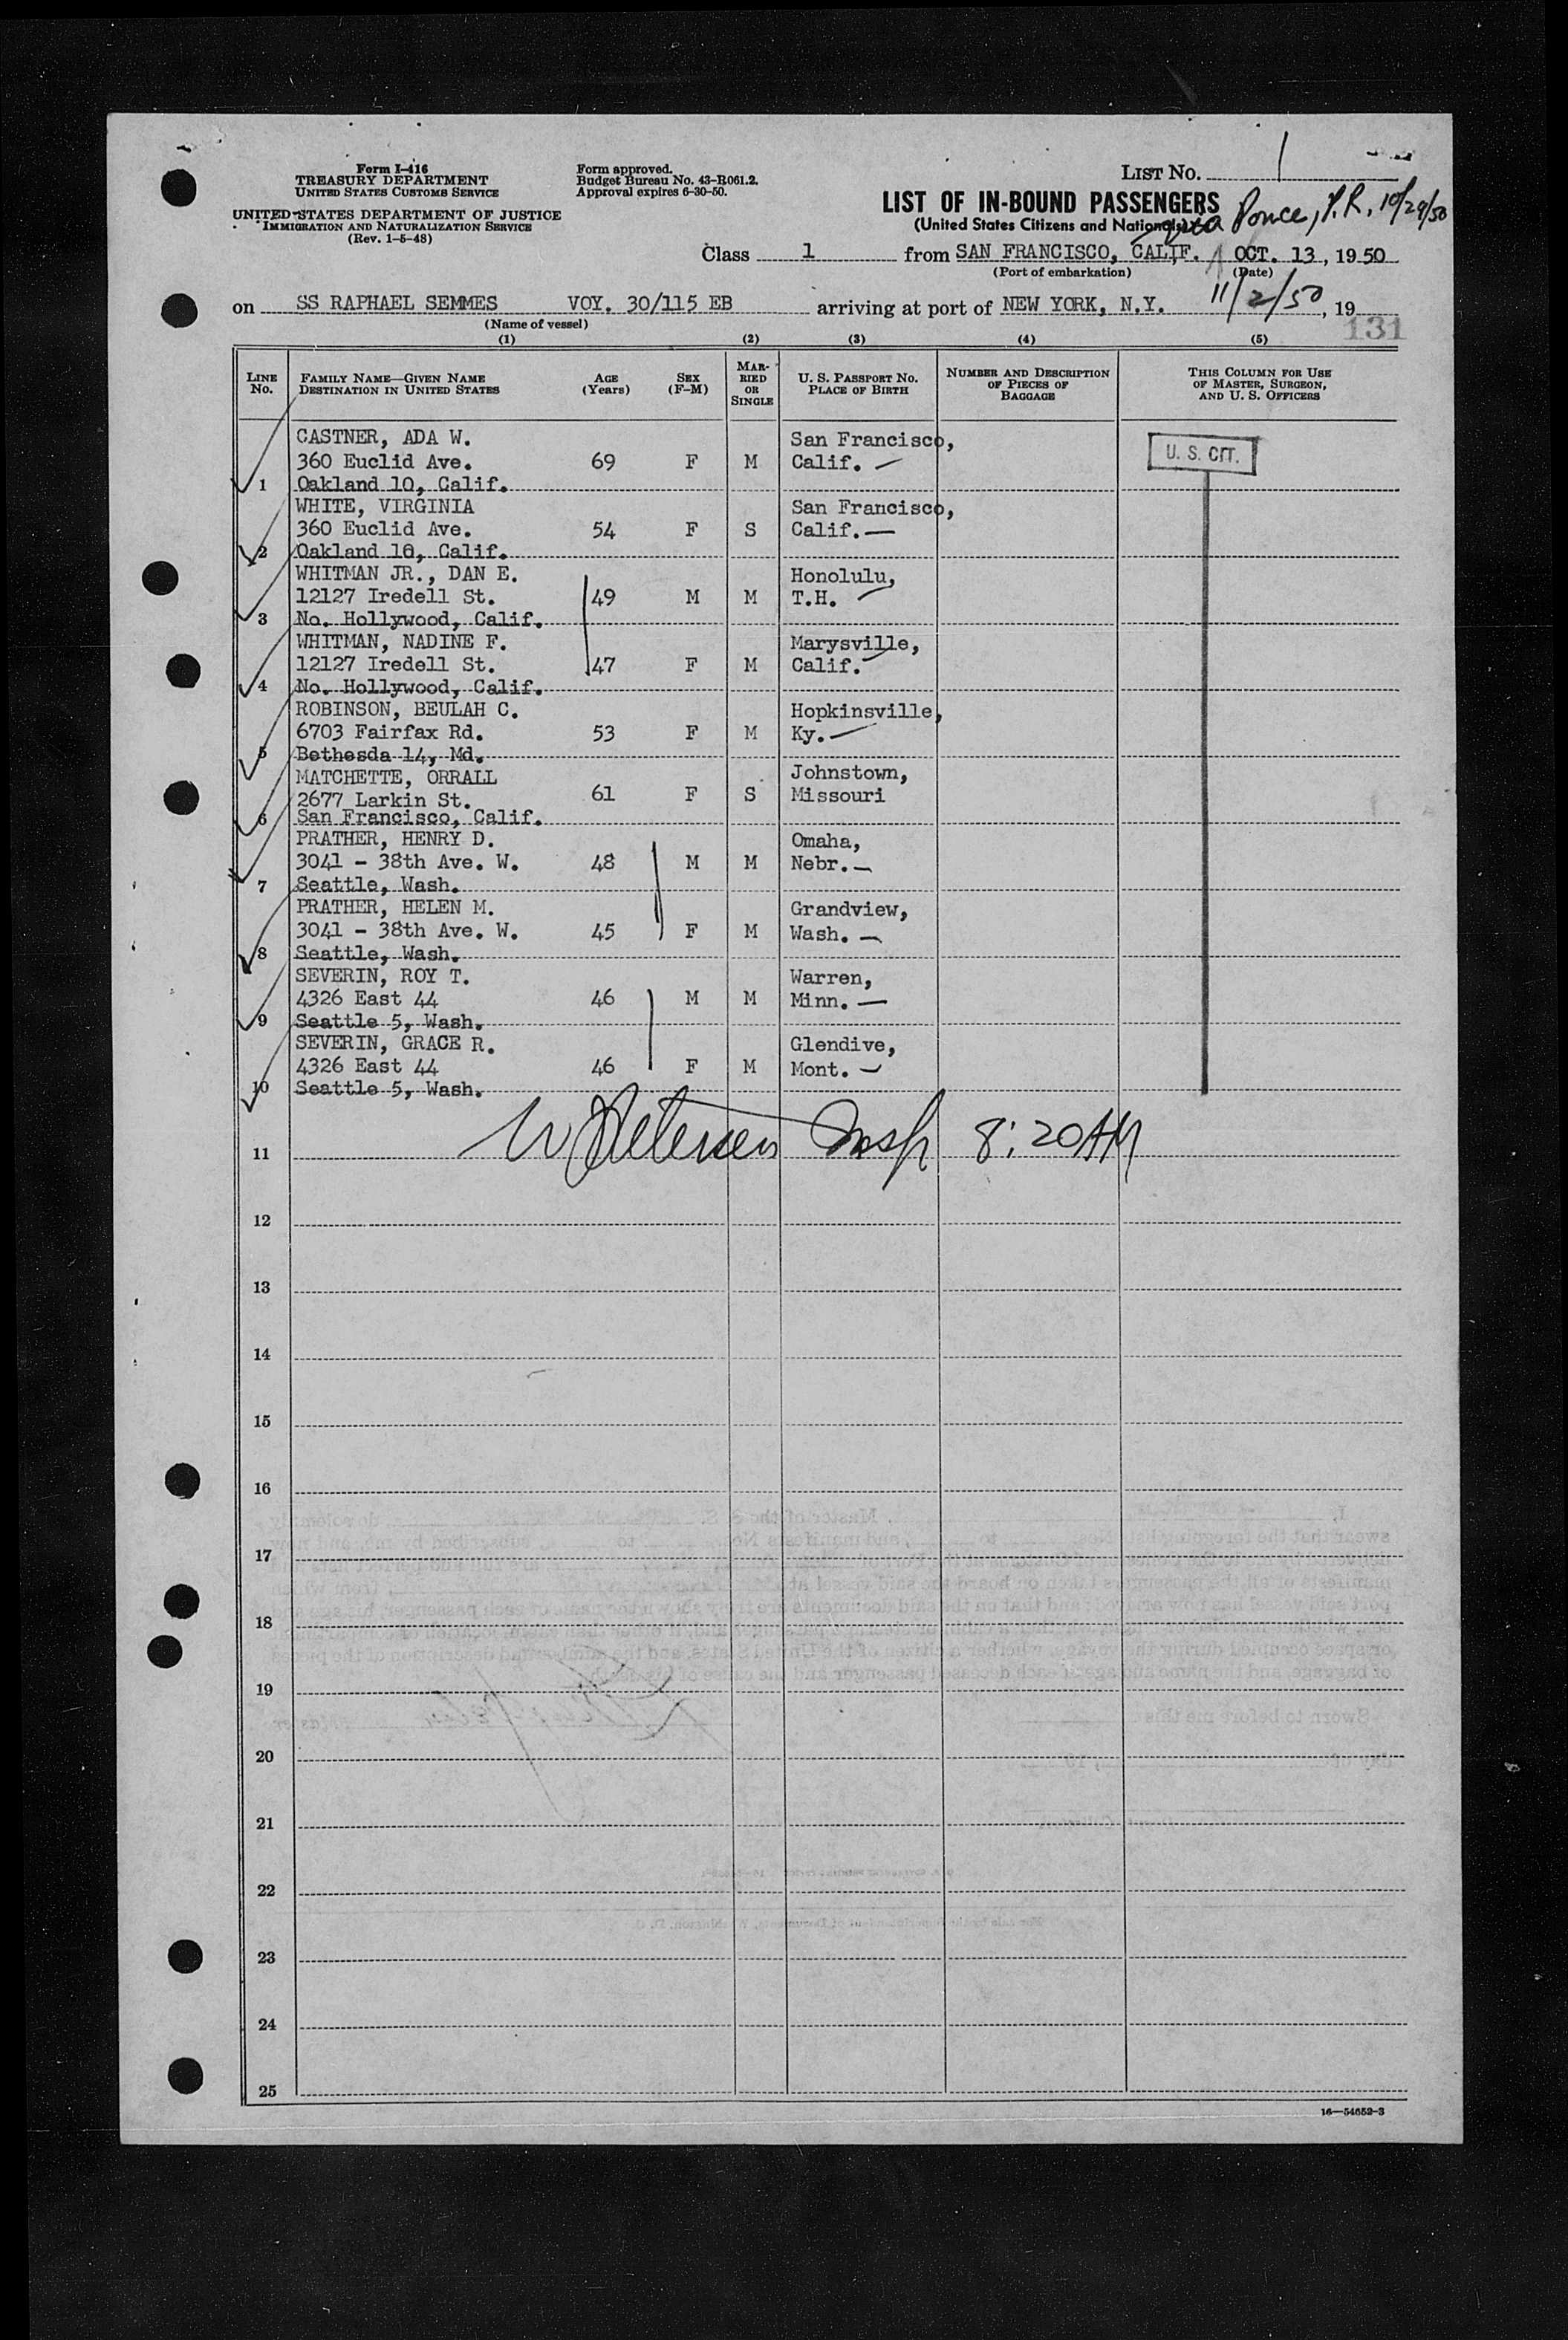 Form I-416
TREASURY DEPARTMENT
UNITED STATES CUSTOMS SERVICE
UNITED STATES DEPARTMENT OF JUSTICE
IMMIGRATION AND NATURALIZATION SERVICE
(Rev. 1-5-48)
Form approved.
Budget Bureau No. 43-R061.2.
Approval expires 6-30-50.
LIST No. 1
LIST OF IN-BOUND PASSENGERS
(United States Citizens and Nationals)
via Ponce, P.R, 10/29/50
Class 1 from SAN FRANCISCO, CALIF. OCT. 13, 1950
(Port of embarkation) (Date)
on SS RAPHAEL SEMMES VOY. 30/115 EB arriving at port of NEW YORK, N.Y. 11/2/50, 19
(Name of vessel)
131
(1) (2) (3) (4) (5)
LINE No. FAMILY NAME—GIVEN NAME DESTINATION IN UNITED STATES AGE (Years) SEX (F-M) MARRIED OR SINGLE U. S. PASSPORT No. PLACE OF BIRTH NUMBER AND DESCRIPTION OF PIECES OF BAGGAGE THIS COLUMN FOR USE OF MASTER, SURGEON, AND U. S. OFFICERS
CASTNER, ADA W. San Francisco,
360 Euclid Ave. 69 F M Calif. U. S. CIT.
1 Oakland 10, Calif.
WHITE, VIRGINIA San Francisco,
360 Euclid Ave. 54 F S Calif.
2 Oakland 10, Calif.
WHITMAN JR., DAN E. Honolulu,
12127 Iredell St. 49 M M T.H.
3 No. Hollywood, Calif.
WHITMAN, NADINE F. Marysville,
12127 Iredell St. 47 F M Calif.
4 No. Hollywood, Calif.
ROBINSON, BEULAH C. Hopkinsville,
6703 Fairfax Rd. 53 F M Ky.
5 Bethesda 14, Md.
MATCHETTE, ORRALL Johnstown,
2677 Larkin St. 61 F S Missouri
6 San Francisco, Calif.
PRATHER, HENRY D. Omaha,
3041 - 38th Ave. W. 48 M M Nebr.
7 Seattle, Wash.
PRATHER, HELEN M. Grandview,
3041 - 38th Ave. W. 45 F M Wash.
8 Seattle, Wash.
SEVERIN, ROY T. Warren,
4326 East 44 46 M M Minn.
9 Seattle 5, Wash.
SEVERIN, GRACE R. Glendive,
4326 East 44 46 F M Mont.
10 Seattle 5, Wash.
11 Petersen Insp 8:20AM
12
13
14
15
16
17
18
19
20
21
22
23
24
25
16—54652-3